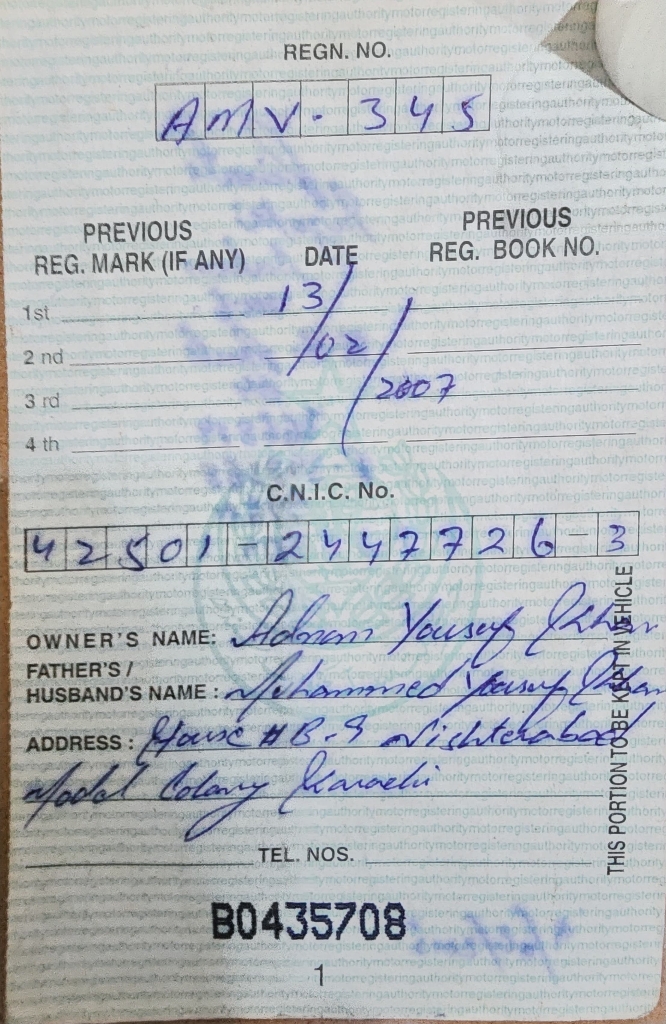 REGN. NO.
AMV-345
PREVIOUS REG. MARK (IF ANY) DATE PREVIOUS REG. BOOK NO.
1st 13/
2 nd 02/
3 rd 2007
4 th
C.N.I.C. No.
42501-2447726-3
OWNER'S NAME: Adnan Yousuf Khan
FATHER'S /
HUSBAND'S NAME : Mohammed Yousuf Khan
ADDRESS : House # B-9 Nishterabad
Modal Colony Karachi
TEL. NOS.
B0435708
1
THIS PORTION TO BE KEPT IN VEHICLE